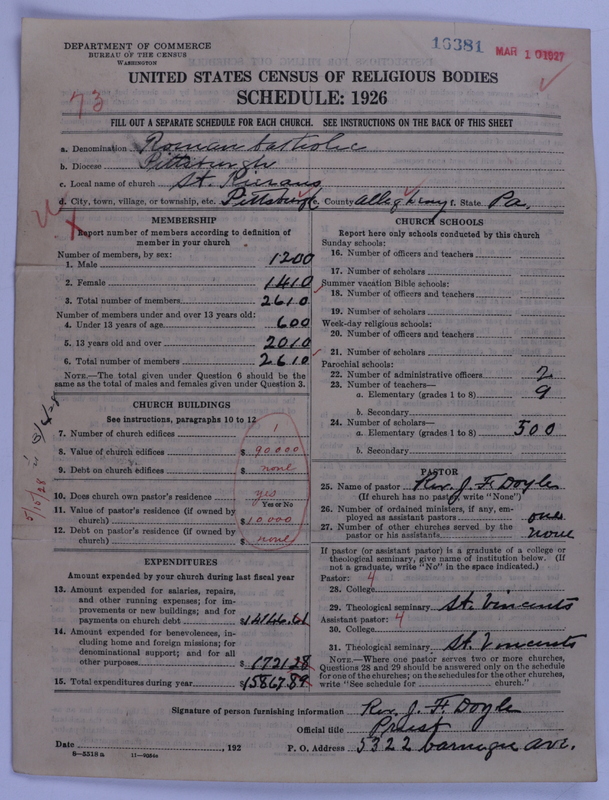 DEPARTMENT OF COMMERCE
BUREAU OF THE CENSUS
WASHINGTON
16381
MAR 10 1927
UNITED STATES CENSUS OF RELIGIOUS BODIES
SCHEDULE: 1926
73
FILL OUT A SEPARATE SCHEDULE FOR EACH CHURCH. SEE INSTRUCTIONS ON THE BACK OF THIS SHEET
a. Denomination Roman Catholic
b. Diocese Pittsburgh
c. Local name of church St. Kierans
d. City, town, village, or township, etc. Pittsburgh e. County Allegheny f. State Pa.
MEMBERSHIP
Report number of members according to definition of
member in your church
Number of members, by sex:
1. Male 1200
2. Female 1410
3. Total number of members 2610
Number of members under and over 13 years old:
4. Under 13 years of age 600
5. 13 years old and over 2010
6. Total number of members 2610
NOTE.—The total given under Question 6 should be the
same as the total of males and females given under Question 3.
CHURCH BUILDINGS
See instructions, paragraphs 10 to 12
7. Number of church edifices 1
8. Value of church edifices $ 90,000
9. Debt on church edifices $ none
10. Does church own pastor's residence yes
Yes or No
11. Value of pastor's residence (if owned by
church) $ 10,000
12. Debt on pastor's residence (if owned by
church) $ none
EXPENDITURES
Amount expended by your church during last fiscal year
13. Amount expended for salaries, repairs,
and other running expenses; for im-
provements or new buildings; and for
payments on church debt $ 14146.61
14. Amount expended for benevolences, in-
cluding home and foreign missions; for
denominational support; and for all
other purposes $ 1721.28
15. Total expenditures during year $ 15867.89
CHURCH SCHOOLS
Report here only schools conducted by this church
Sunday schools:
16. Number of officers and teachers
17. Number of scholars
Summer vacation Bible schools:
18. Number of officers and teachers
19. Number of scholars
Week-day religious schools:
20. Number of officers and teachers
21. Number of scholars
Parochial schools:
22. Number of administrative officers 2
23. Number of teachers—
a. Elementary (grades 1 to 8) 9
b. Secondary
24. Number of scholars—
a. Elementary (grades 1 to 8) 500
b. Secondary
PASTOR
25. Name of pastor Rev. J. F. Doyle
(If church has no pastor, write "None")
26. Number of ordained ministers, if any, em-
ployed as assistant pastors one
27. Number of other churches served by the
pastor or his assistants none
If pastor (or assistant pastor) is a graduate of a college or
theological seminary, give name of institution below. (If
not a graduate, write "No" in the space indicated.)
Pastor: 4
28. College
29. Theological seminary St. Vincents
Assistant pastor: 4
30. College
31. Theological seminary St. Vincents
NOTE.—Where one pastor serves two or more churches,
Questions 28 and 29 should be answered only on the schedule
for one of the churches; on the schedules for the other churches,
write "See schedule for church."
Signature of person furnishing information Rev. J. F. Doyle
Official title Priest
Date , 192 P. O. Address 5322 Carnegie Ave.
8—5518 a